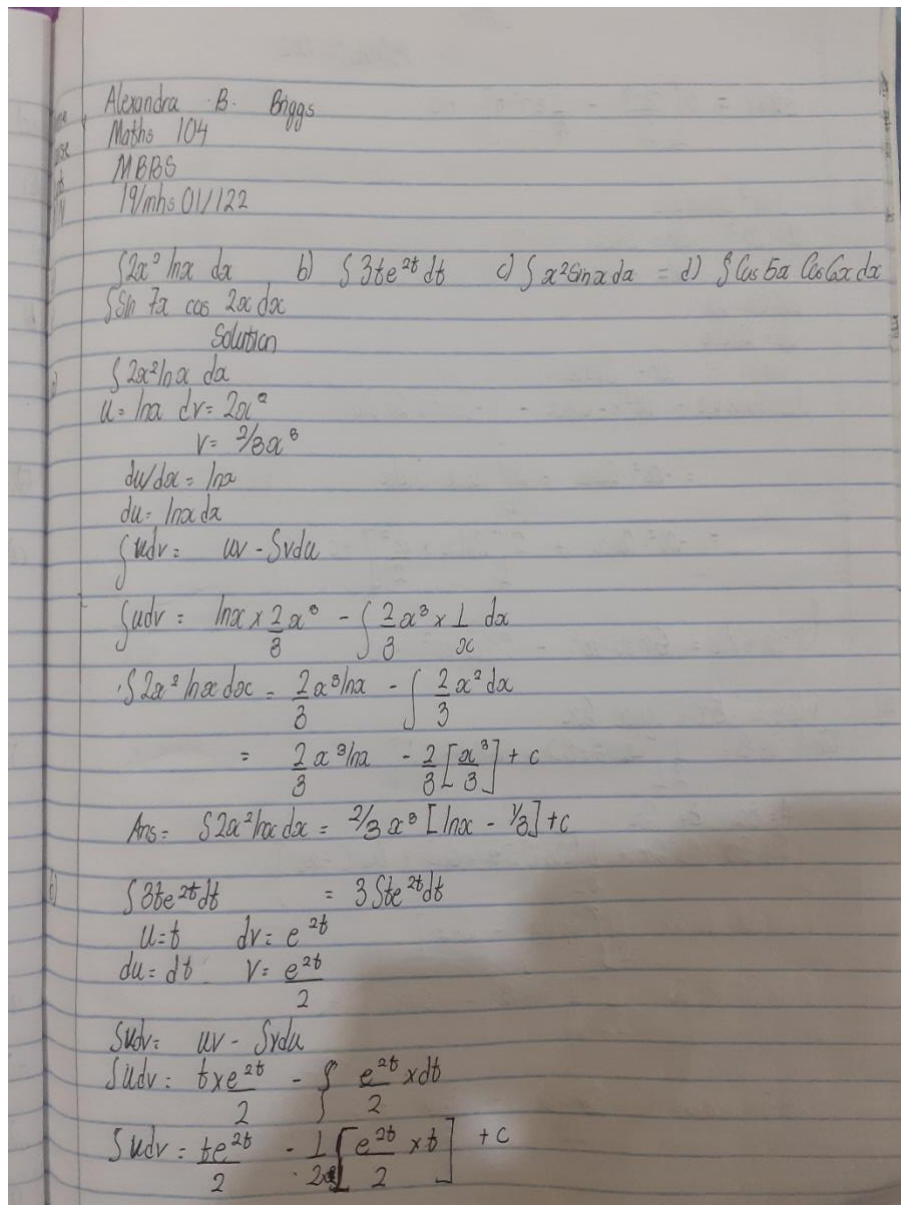 Alexandra B. Briggs
Maths 104
MBBS
19/mhs 01/122
∫2x² lnx dx b) ∫3te²ᵗ dt c) ∫x² Sinx dx = d) ∫Cos 5x Cos 6x dx
∫Sin 7x cos 2x dx
Solution
∫2x² lnx dx
u = lnx dv = 2x²
v = 2/3x³
du/dx = lnx
du = lnx dx
∫udv = uv - ∫vdu
∫udv = lnx × 2/3 x³ - ∫ 2/3 x³ × 1/x dx
∫2x² lnx dx = 2/3 x³ lnx - ∫ 2/3 x² dx
= 2/3 x³ lnx - 2/3 [x³/3] + c
Ans = ∫2x² lnx dx = 2/3 x³ [lnx - 1/3] + c
b) ∫3te²ᵗ dt = 3∫te²ᵗ dt
u = t dv = e²ᵗ
du = dt v = e²ᵗ/2
∫udv = uv - ∫vdu
∫udv = t × e²ᵗ/2 - ∫ e²ᵗ/2 × dt
∫udv = te²ᵗ/2 - 1/2 [e²ᵗ/2 × t] + c